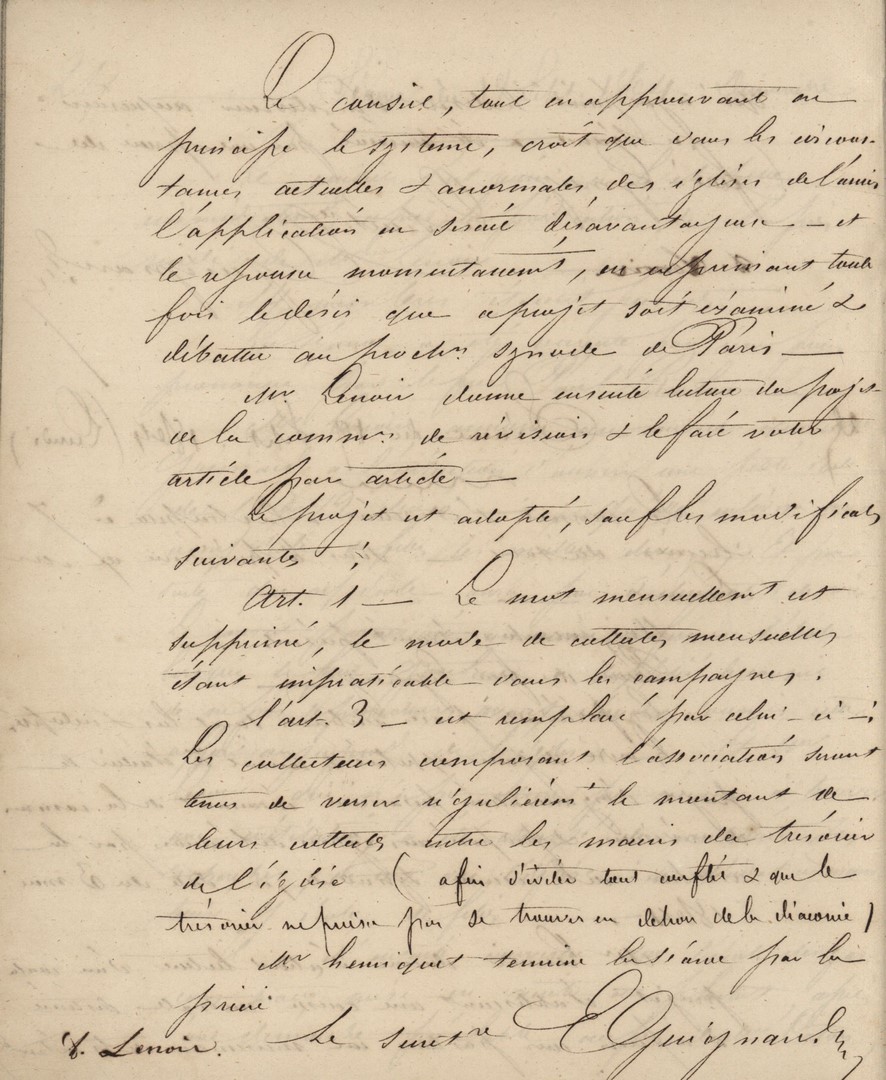 Le conseil, tout en approuvant en
principe le système, croit que dans les circons-
tances actuelles & anormales des églises de l'union
l'application en serait désavantageuse — et
le repousse momentanement, en exprimant toute
fois le désir que ce projet soit examiné &
débattu au prochn synode de Paris —
Mr. Lenoir donne ensuite lecture du projet
de la commn. de révision & le fait voter
article par article —
Le projet est adopté, sauf les modificat
suivantes :
Art. 1 — Le mot mensuellemt est
supprimé, le mode de collectes mensuelles
étant impraticable dans les campagnes.
l'art. 3 — est remplacé par celui-ci — :
Les collecteurs composant l'association seront
tenus de verser régulièremt le montant de
leurs collectes entre les mains du trésorier
de l'église ( afin d'éviter tout conflit & que le
trésorier ne puisse pas se trouver en dehors de la diaconie )
Mr hemiquet termine la séance par la
prière
Lenoir. Le secretre EGuignard